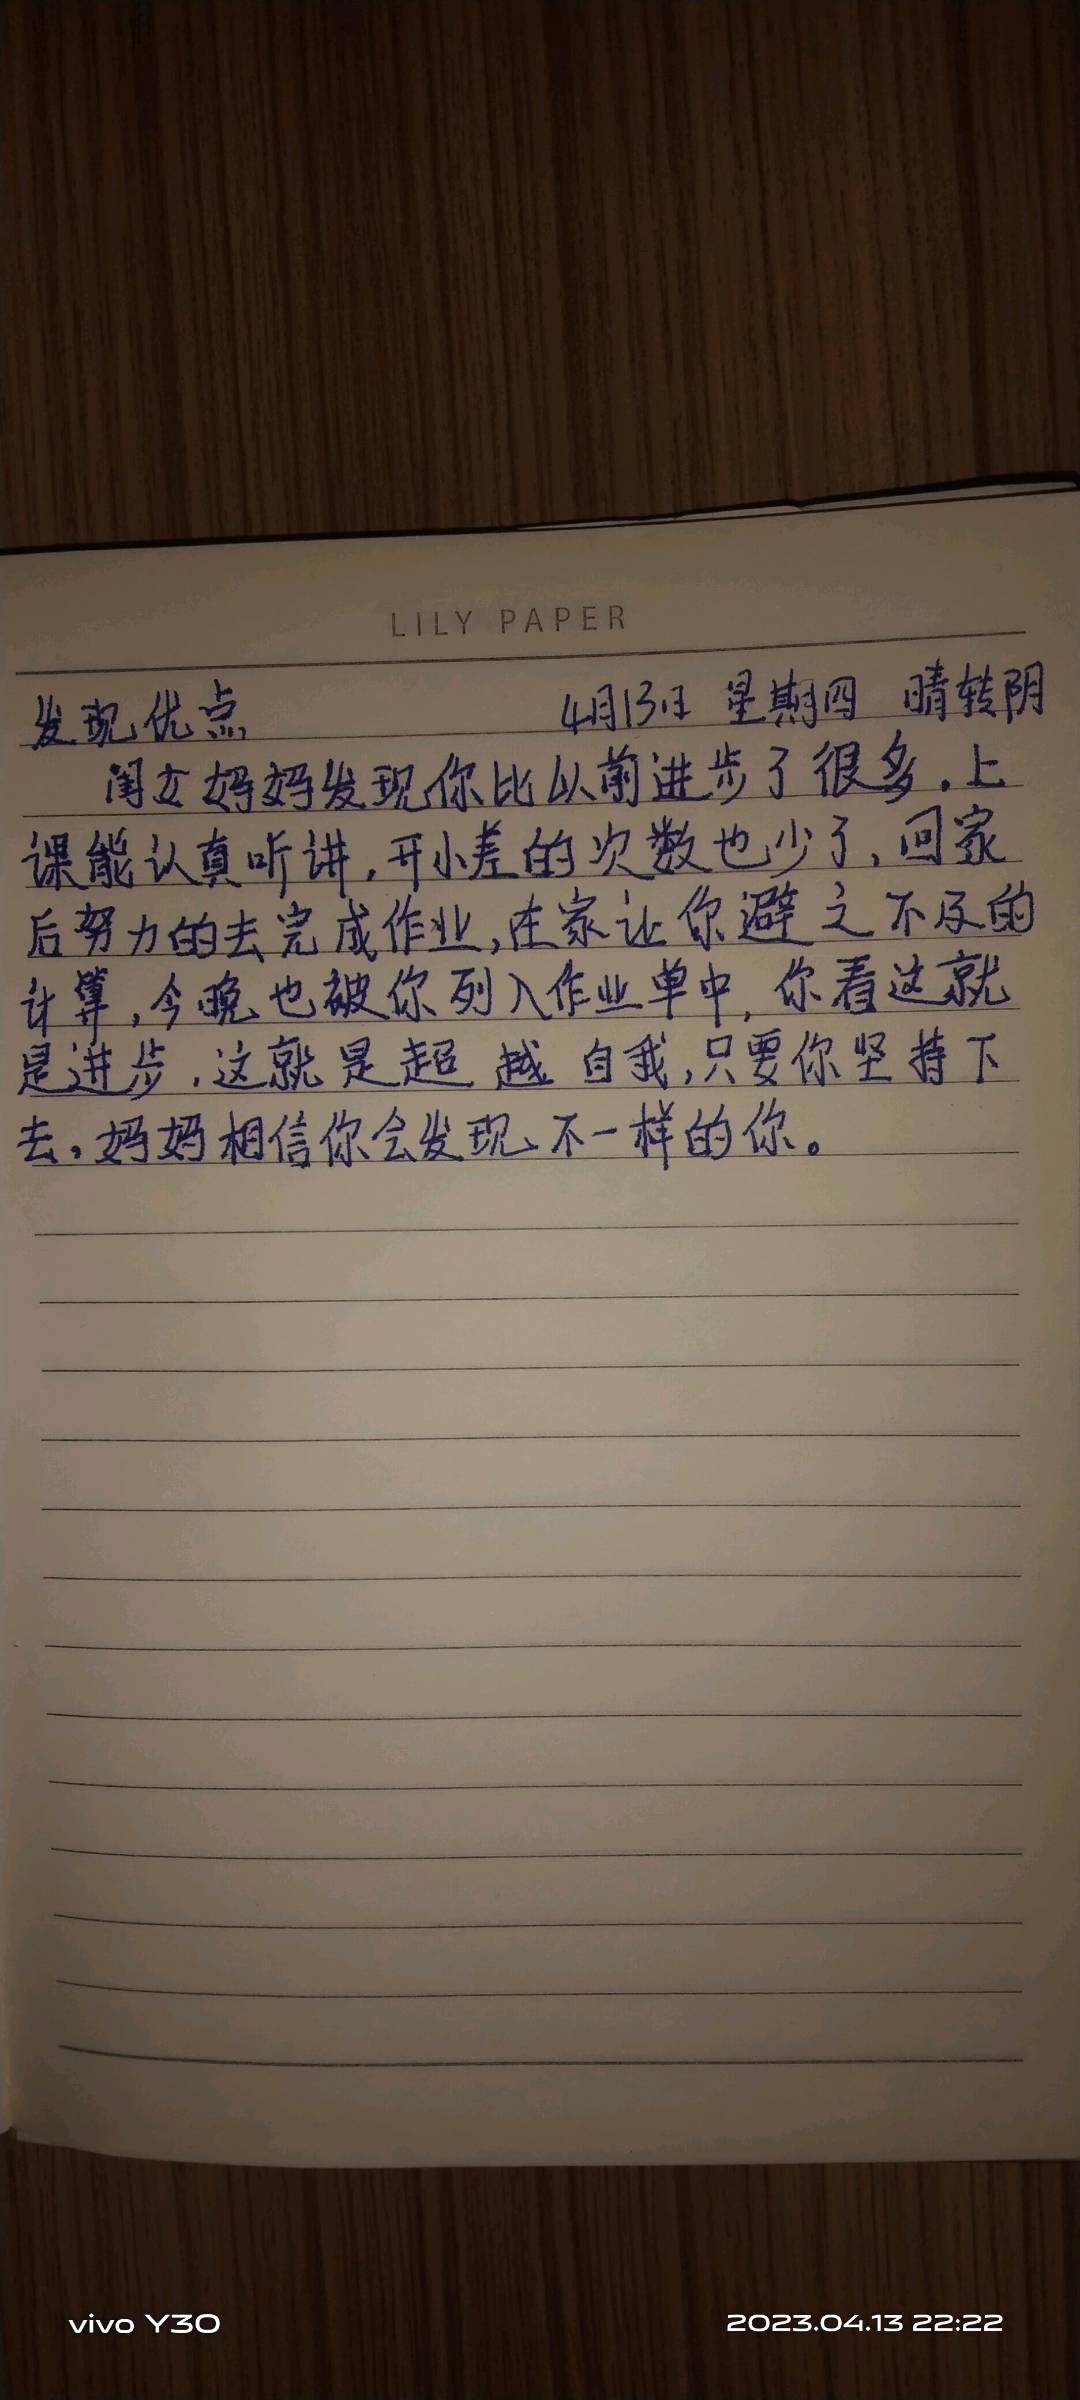 LILY PAPER
发现优点 4月13日 星期四 晴转阴
闺女妈妈发现你比以前进步了很多.上
课能认真听讲,开小差的次数也少了,回家
后努力的去完成作业,在家让你避之不及的
计算,今晚也被你列入作业单中,你看这就
是进步.这就是超越自我,只要你坚持下
去,妈妈相信你会发现不一样的你。
vivo Y30
2023.04.13 22:22